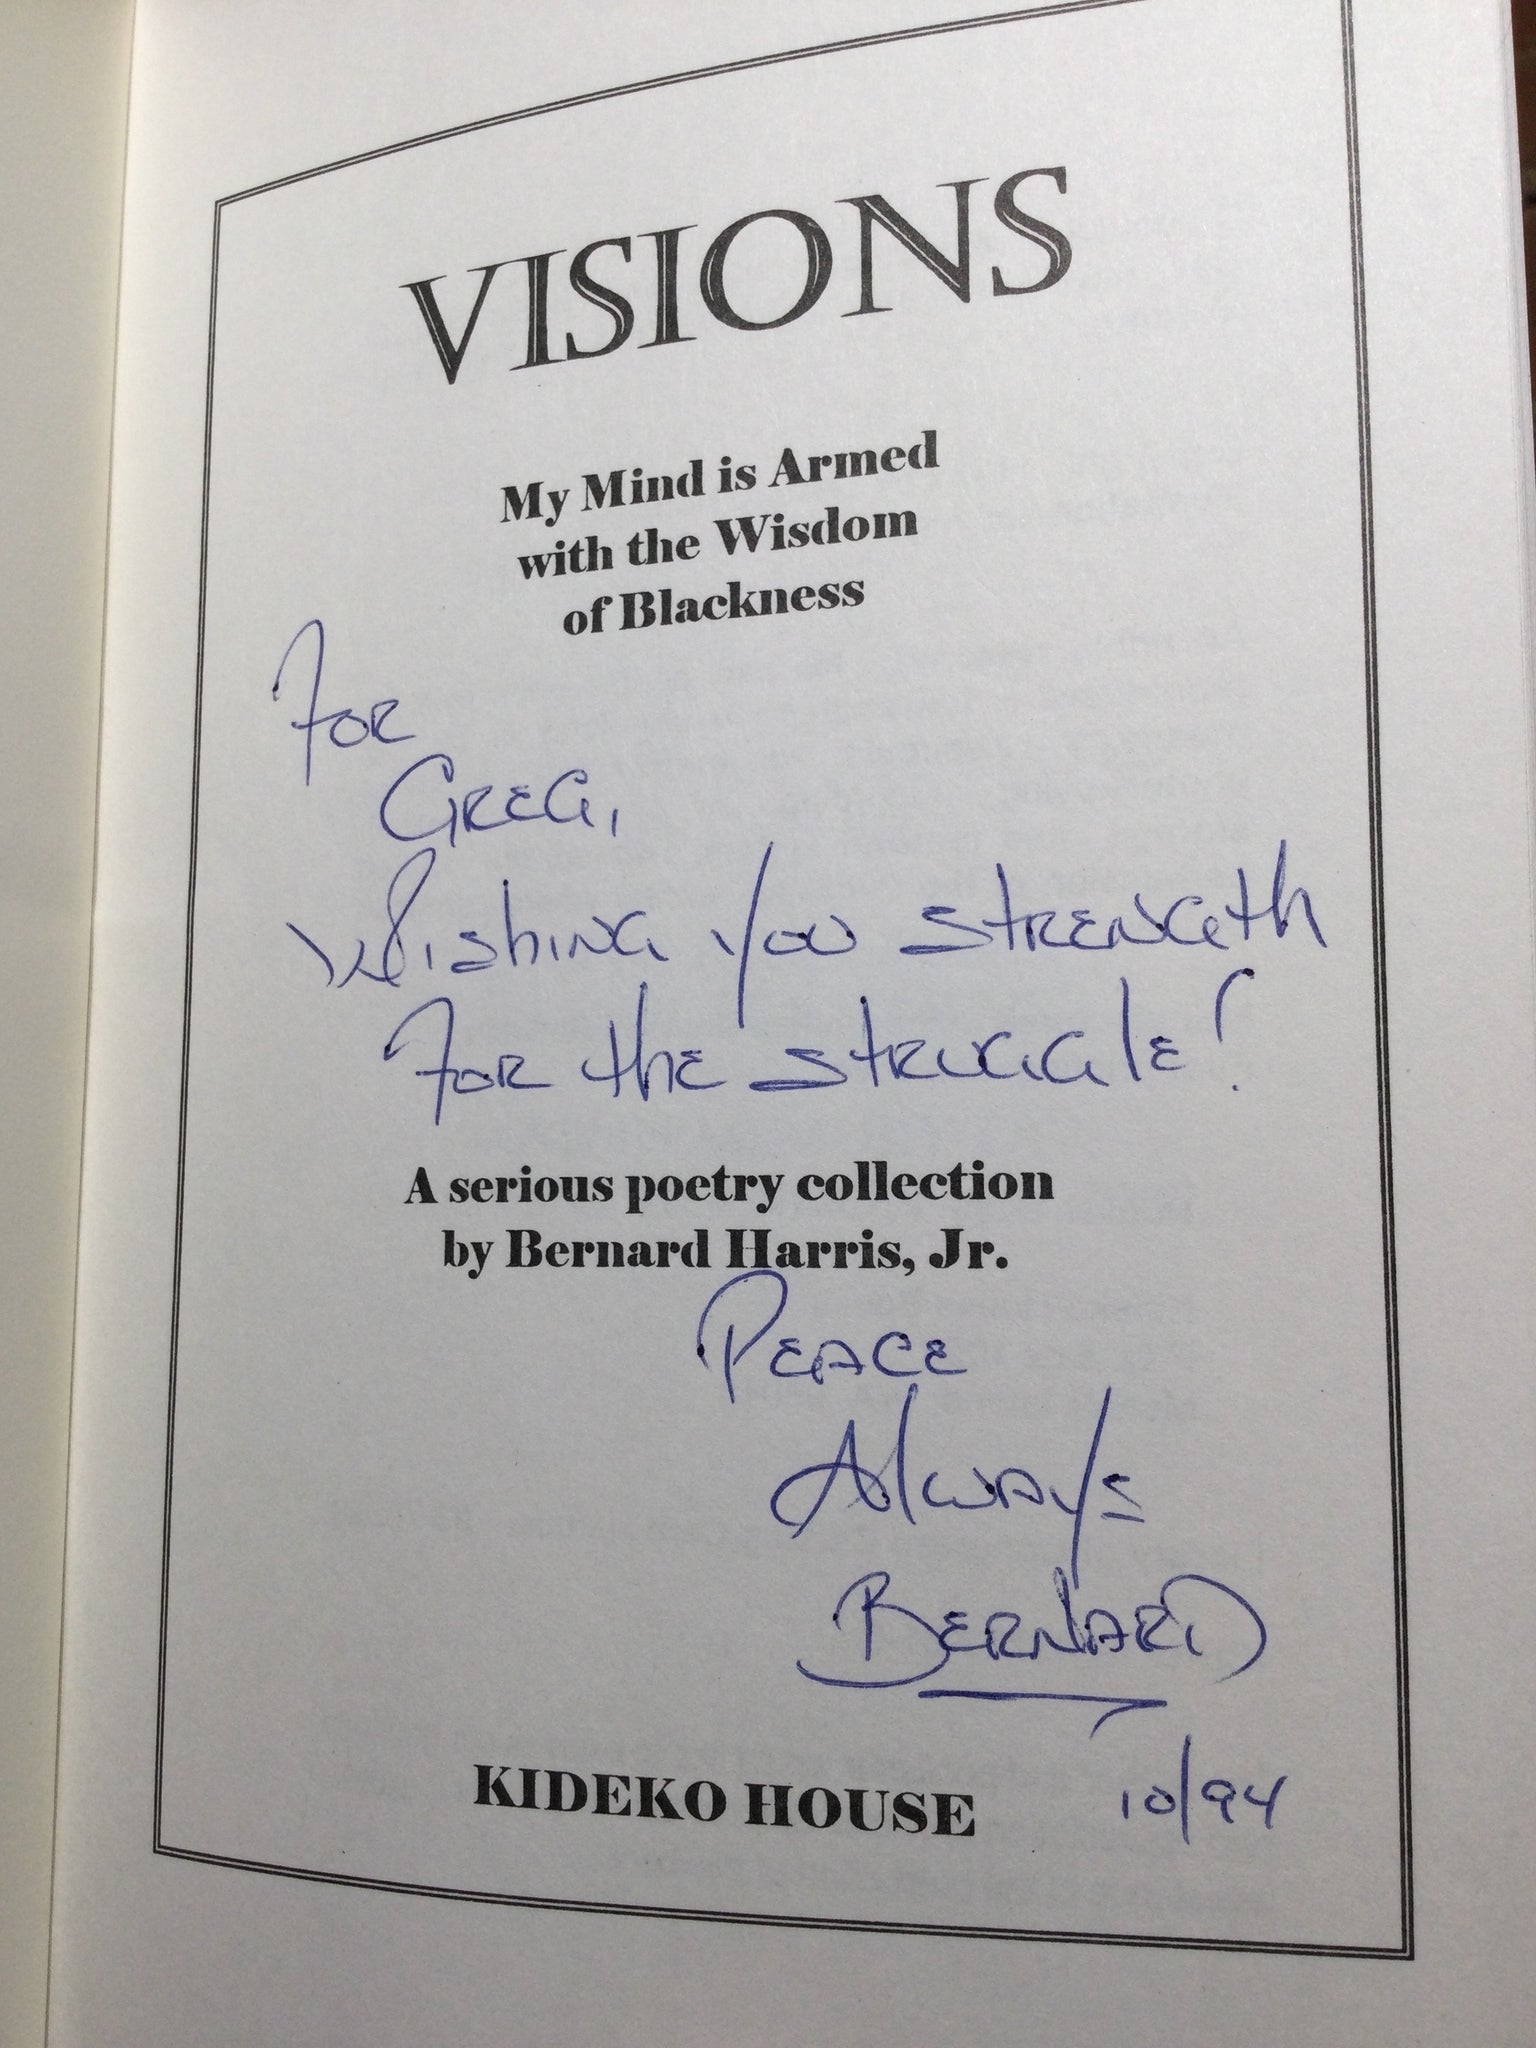 VISIONS
My Mind is Armed
with the Wisdom
of Blackness
For
Greg,
Wishing you strength
for the struggle!
A serious poetry collection
by Bernard Harris, Jr.
Peace
Always
Bernard
KIDEKO HOUSE
10/94